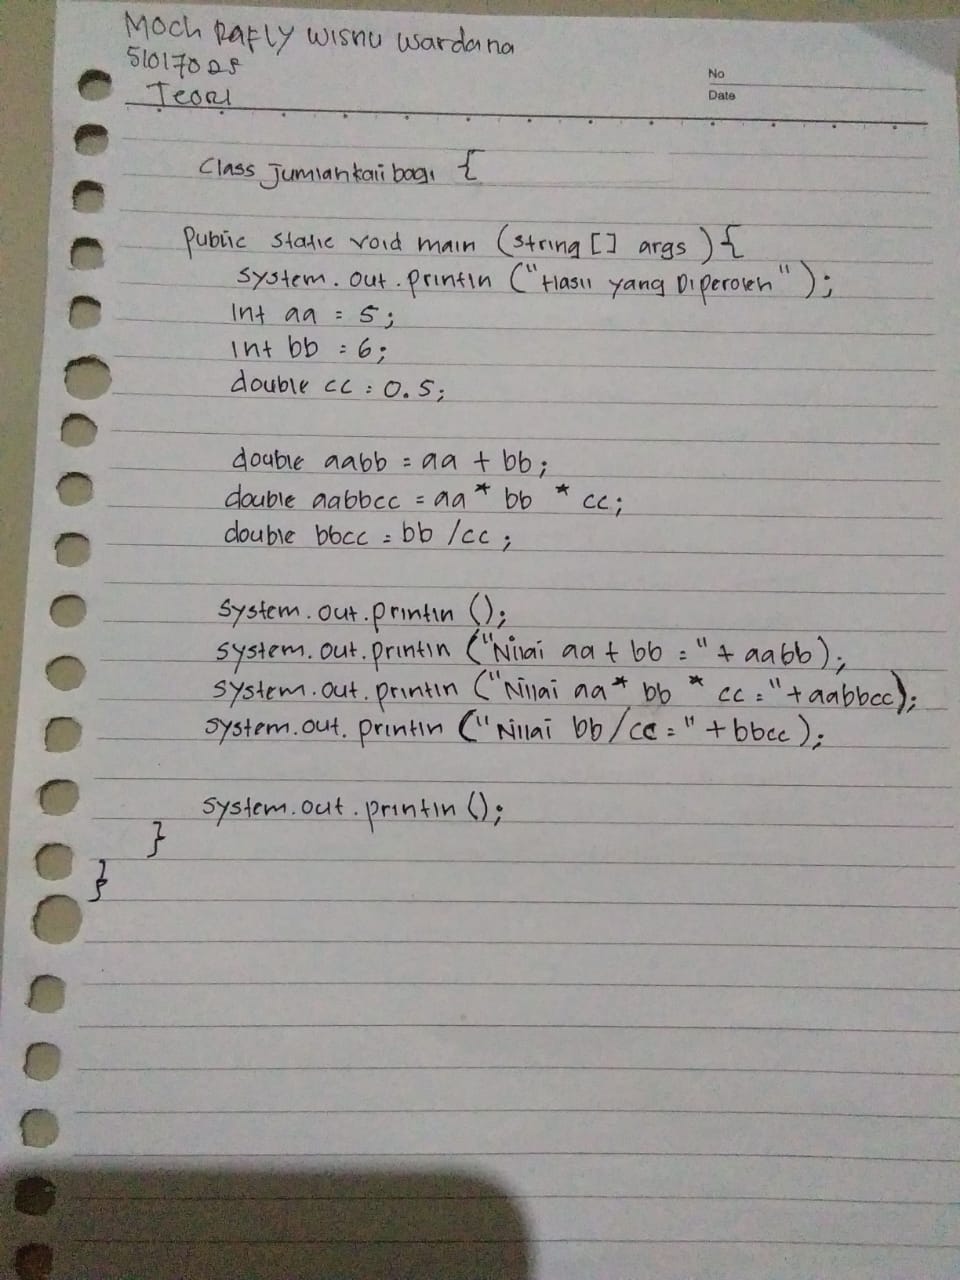 Moch Rafly Wisnu Wardana
51017025
Teori
No
Date
Class jumlahkalibagi {
Public static void main (string [] args) {
system.out.println ("Hasil yang Diperoleh");
int aa = 5;
int bb = 6;
double cc = 0.5;
double aabb = aa + bb;
double aabbcc = aa * bb * cc;
double bbcc = bb /cc;
system.out.println ();
system.out.println ("Nilai aa + bb = " + aabb);
system.out.println ("Nilai aa * bb * cc = " + aabbcc);
system.out.println ("Nilai bb/cc = " + bbcc);
system.out.println ();
}
}